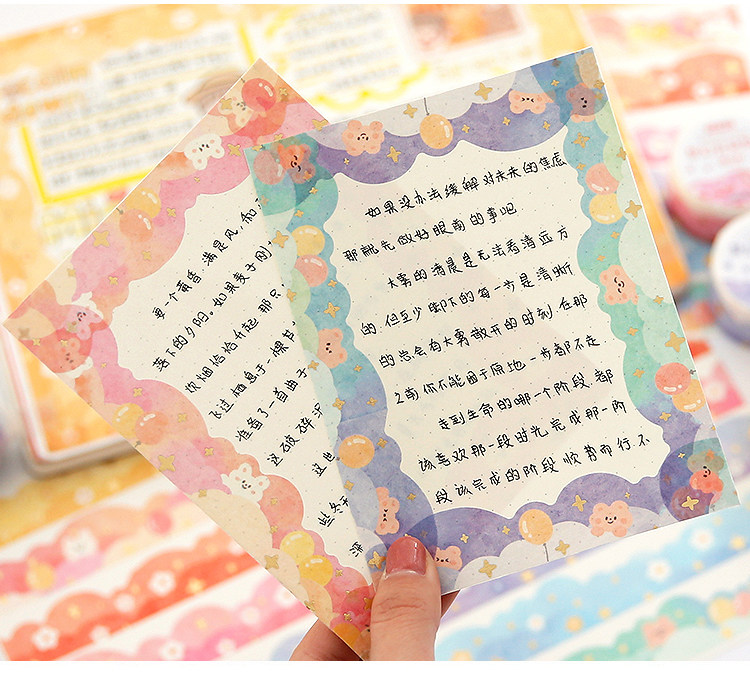 要一个黄昏 满是风, 和
落下的夕阳。如果麦子刚
炊烟恰恰升起。那只
飞过 栖息于一棵
准备了一首曲子
这破碎
这世
些冬
如果没办法缓解对未来的焦虑
那就先做好眼前的事吧
大雾的清晨是无法看清远方
的, 但至少脚下的每一步是清晰
的总会有大雾散开的时刻 在那
之前 你不能困于原地一步都不走.
走到生命的哪一个阶段 都
该喜欢那一段时光 完成那一阶
段该完成的阶段 顺势而行 不